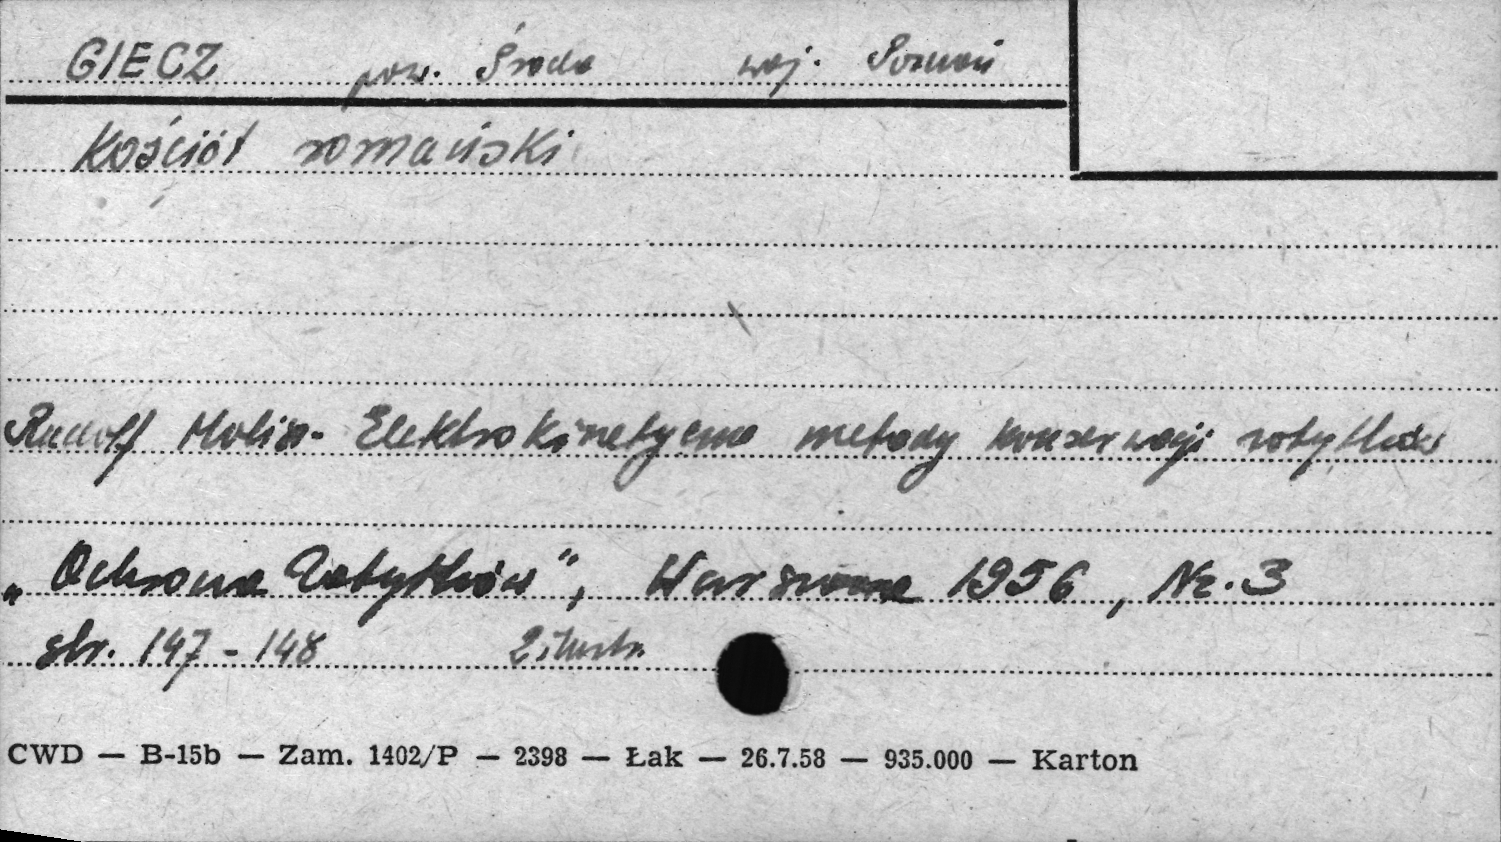 GIECZ pow. Środa woj. Poznań
Kościół romański
Rudolf Molisz - Elektrokinetyczne metody konserwacji zabytków
„Ochrona Zabytków”, Warszawa 1956, Nr. 3
str. 147 - 148 2 ilustr.
CWD — B-15b — Zam. 1402/P — 2398 — Łak — 26.7.58 — 935.000 — Karton